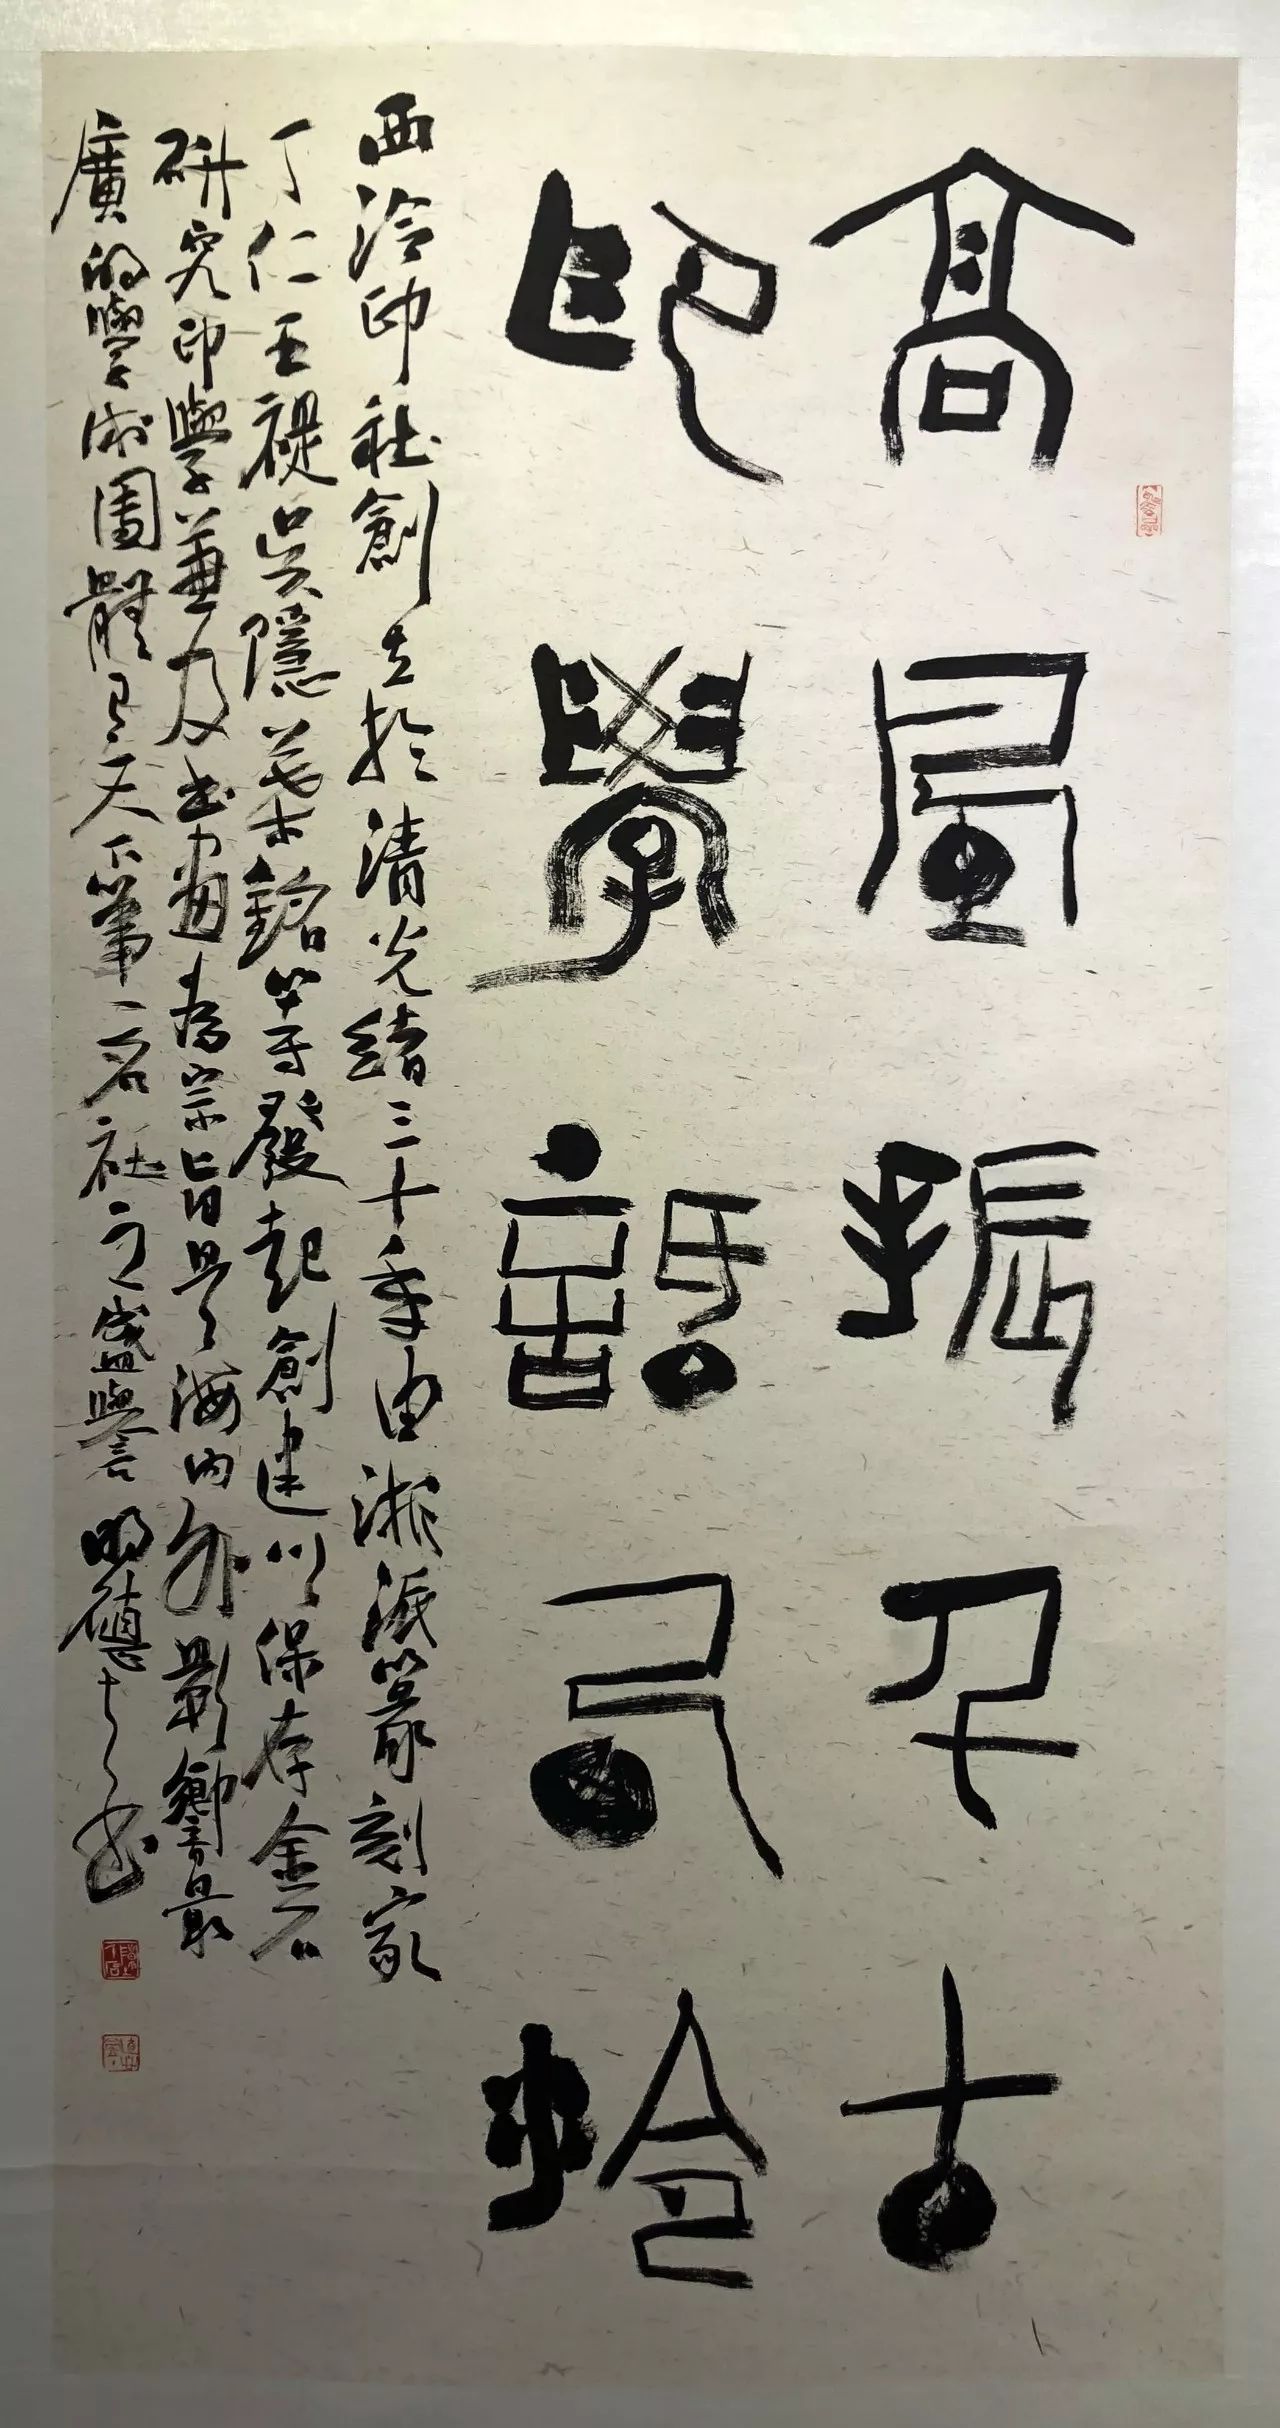 高風振千古
印學話西泠
西泠印社創立於清光緒三十年由浙派篆刻家
丁仁王禔吳隱葉銘等發起創建以保存金石
研究印學兼及書畫為宗旨是海內外影響最
廣的學術團體有天下第一名社之盛譽 明德 書